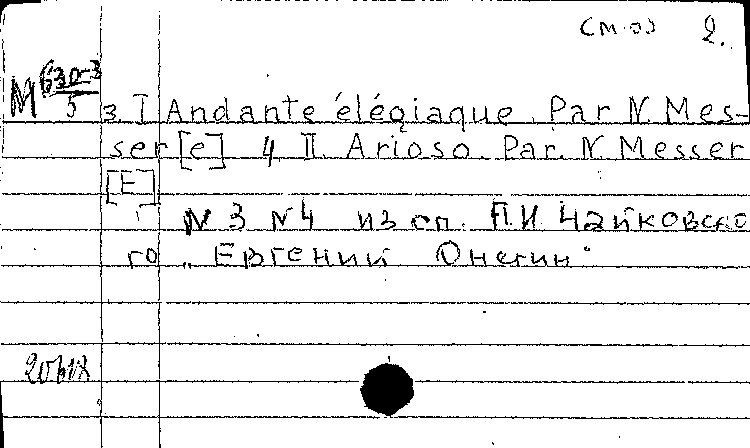 (м.о) 2.
М 630-3/5
3. I Andante élégiaque. Par N. Mes-
ser[e] 4 II. Arioso. Par. N. Messer
[E]
N 3 N 4 из оп. П.И Чайковско
го „Евгений Онегин"